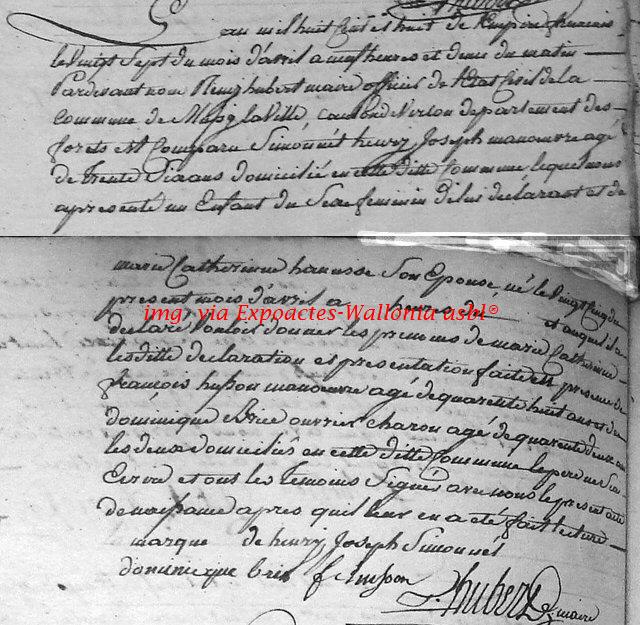 L'an mil huit Cent et huit de l'empire francais
le vingt Sept du mois d'avril a neuf heures et demi du matin
Pardevant nous Remy hubert maire officier de l'état Civil de la
commune de Mussy la Ville, canton de Virton departement des
forets est Comparu Simonnet henry Joseph manoeuvre agé
de trente Six ans domicilié en cette ditte Commune, lequel nous
a presenté un Enfant du Sexe feminin de lui declarant et de
marie Catherinne hanisse Son Epouse né le vingt Cinq du
present mois d'avril a heures du et auquel il a
declaré Vouloir donner les prenoms de marie Catherinne
lesditte declaration et presentation faites en presence de
françois husson manoeuvre agé de quarente huit ans et de
dominique Brie ouvrier charon agé de quarente deux ans
les deux domiciliés en cette ditte Commune le pere ne Su
Ecrire et ont les temoins Signé avec nous le present acte
de naissance apres qu'il leur en a eté fait lecture
marque de henry Joseph Simonnet
dominique brie f husson
hubert maire
img via Expoactes-Wallonia asbl®